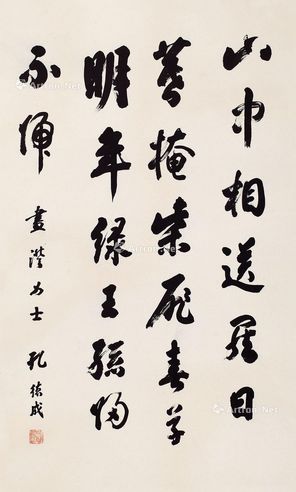 山中相送罷日
暮掩柴扉春草
明年綠王孫歸
不歸 畫 女士 孔德成
Artron.Net